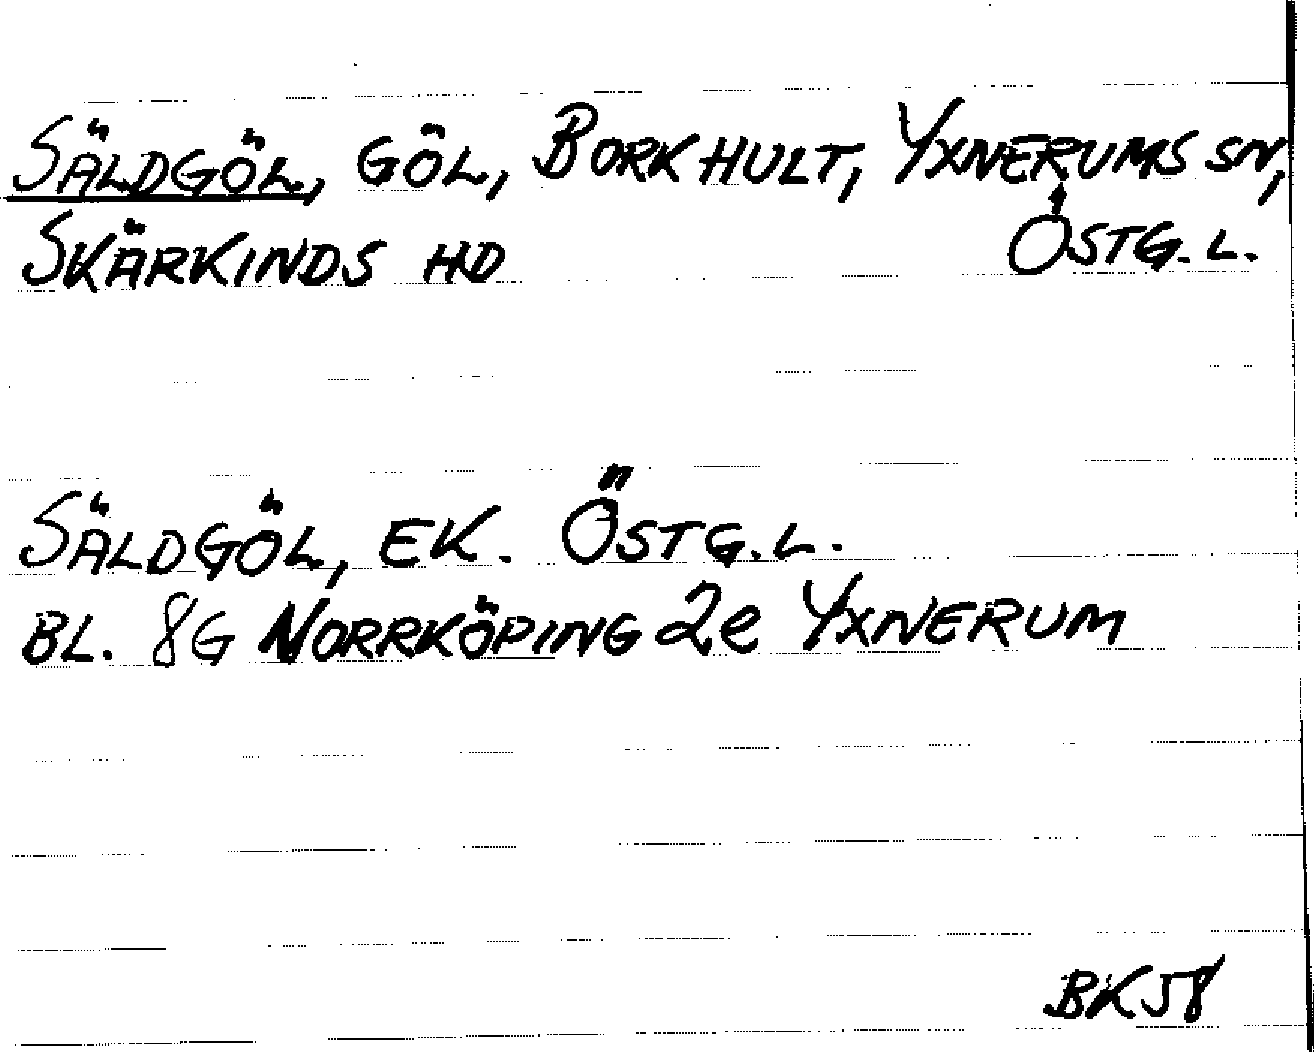 SÄLDGÖL, GÖL, BORKHULT, YXNERUMS SN,
SKÄRKINDS HD ÖSTG. L.
SÄLDGÖL, EK. ÖSTG. L.
BL. 8G NORRKÖPING 2e YXNERUM
BK58